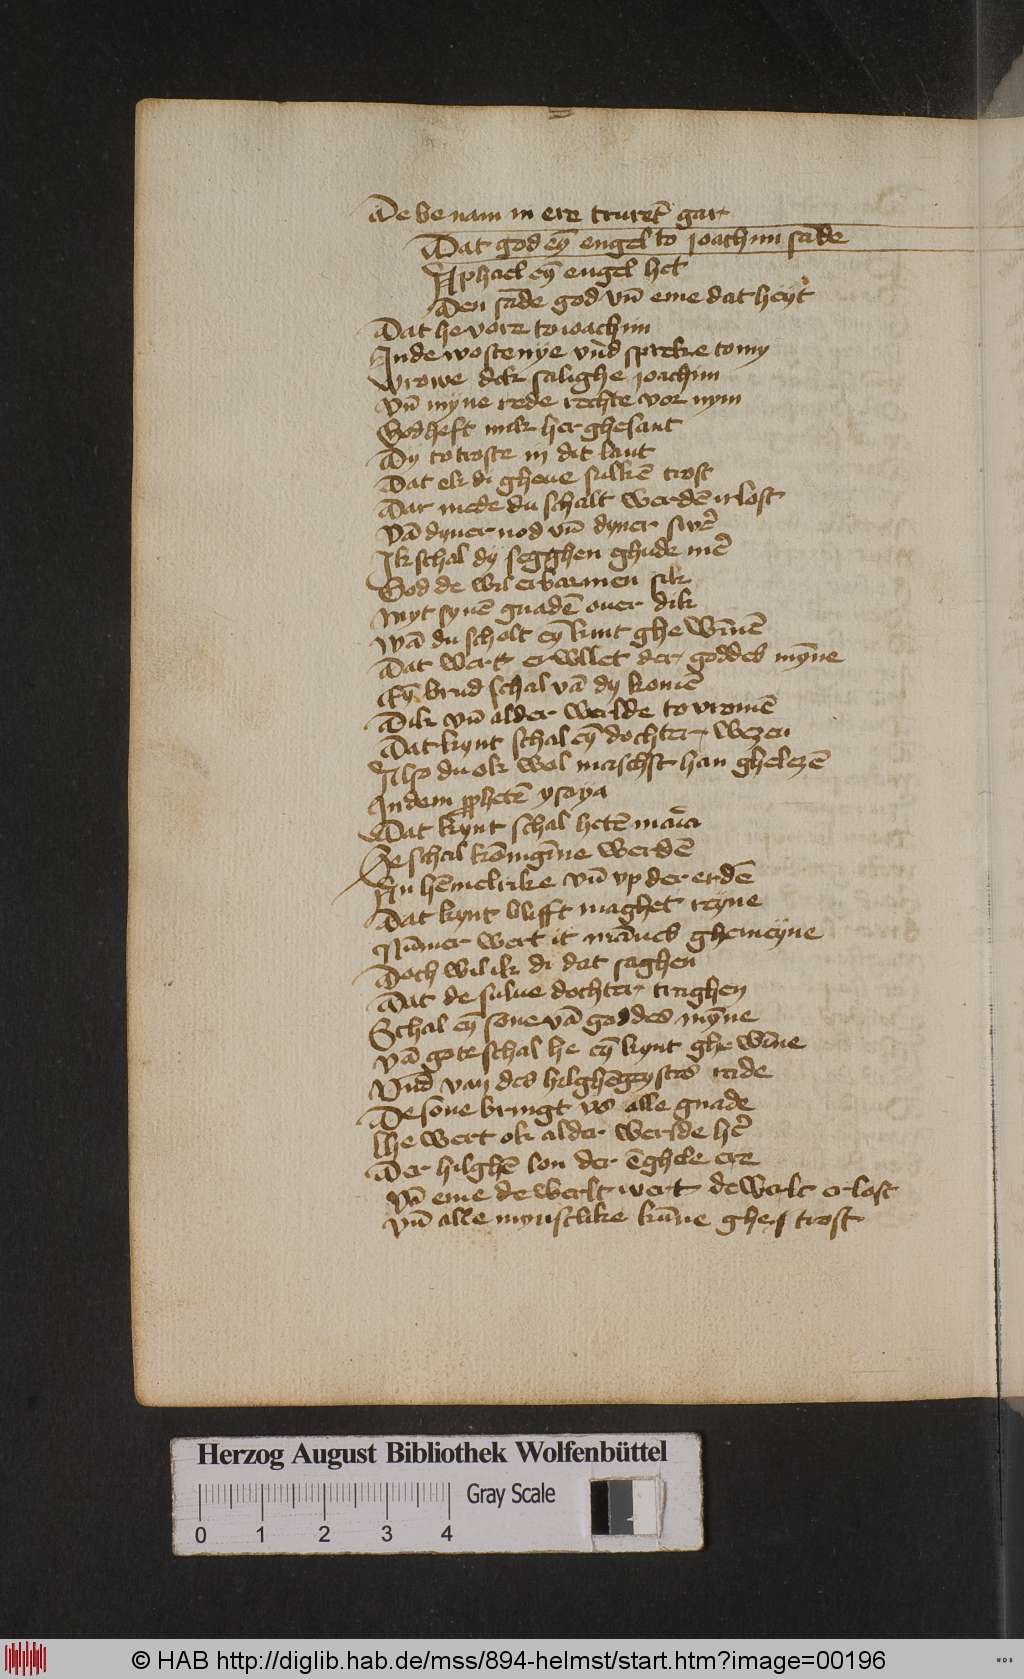 De be nam in ere truret̄ gar
Dat god ey̅ engel to joachim sa̅de
Aphael ey̅ engel het
Den sa̅de god vn̅ eme dat heyt
Dat he vore to ioachim
In de wostenÿe vn̅d spreke to my
Vrowe dik salighe joachim
Vn̅ mÿne rede rechte vor nym
God heft mik her ghesant
Dy to troste in dit lant
Dat ek di gheue sulke̅ trost
Dar mede du schalt werde̅ irlost
Va̅ dyner nod vn̅ dyner swe᷒
Ik schal dÿ segghen ghude me᷒
God de wil erbarmen sik
Myt syne̅ gnade̅ ouer dik
Wa̅ du scholt ey̅ kint ghe wi̅ne̅
Dat wert erwllet der goddes my̅ne
Ey̅ brud schal va̅ dy kome̅
Dik vn̅ alder werlde to vrome̅
Dat kynt schal ey̅ dochter wezen
Also du ok wol machst han gheleze̅
In dem ꝓphete̅ ysaya
Dat kynt schal hete̅ maria
Se schal ko̅nigi̅ne werde̅
An he̅melrike vn̅ vp der erde̅
Dat kynt blifft maghet reyne
Nu̅mer wert it ma̅nes ghemeÿne
Doch wil ik di dat saghen
Dat de sulue dochter traghen
Schal ey̅ sone va̅ goddes my̅ne
Va̅ gote schal he ey̅ kynt ghe wi̅ne
Vn̅d van des hilghe̅ geystes rade
De sone bringt vs alle gnade
He wert ok alder werlde he᷒
Der hilghe̅ lon der e̅ghele ere
Va̅ eme de werlt wert de werlt erlost
Vn̅ alle mynslike ku̅ne trost
Herzog August Bibliothek Wolfenbüttel
Gray Scale
0 1 2 3 4
© HAB http://diglib.hab.de/mss/894-helmst/start.htm?image=00196